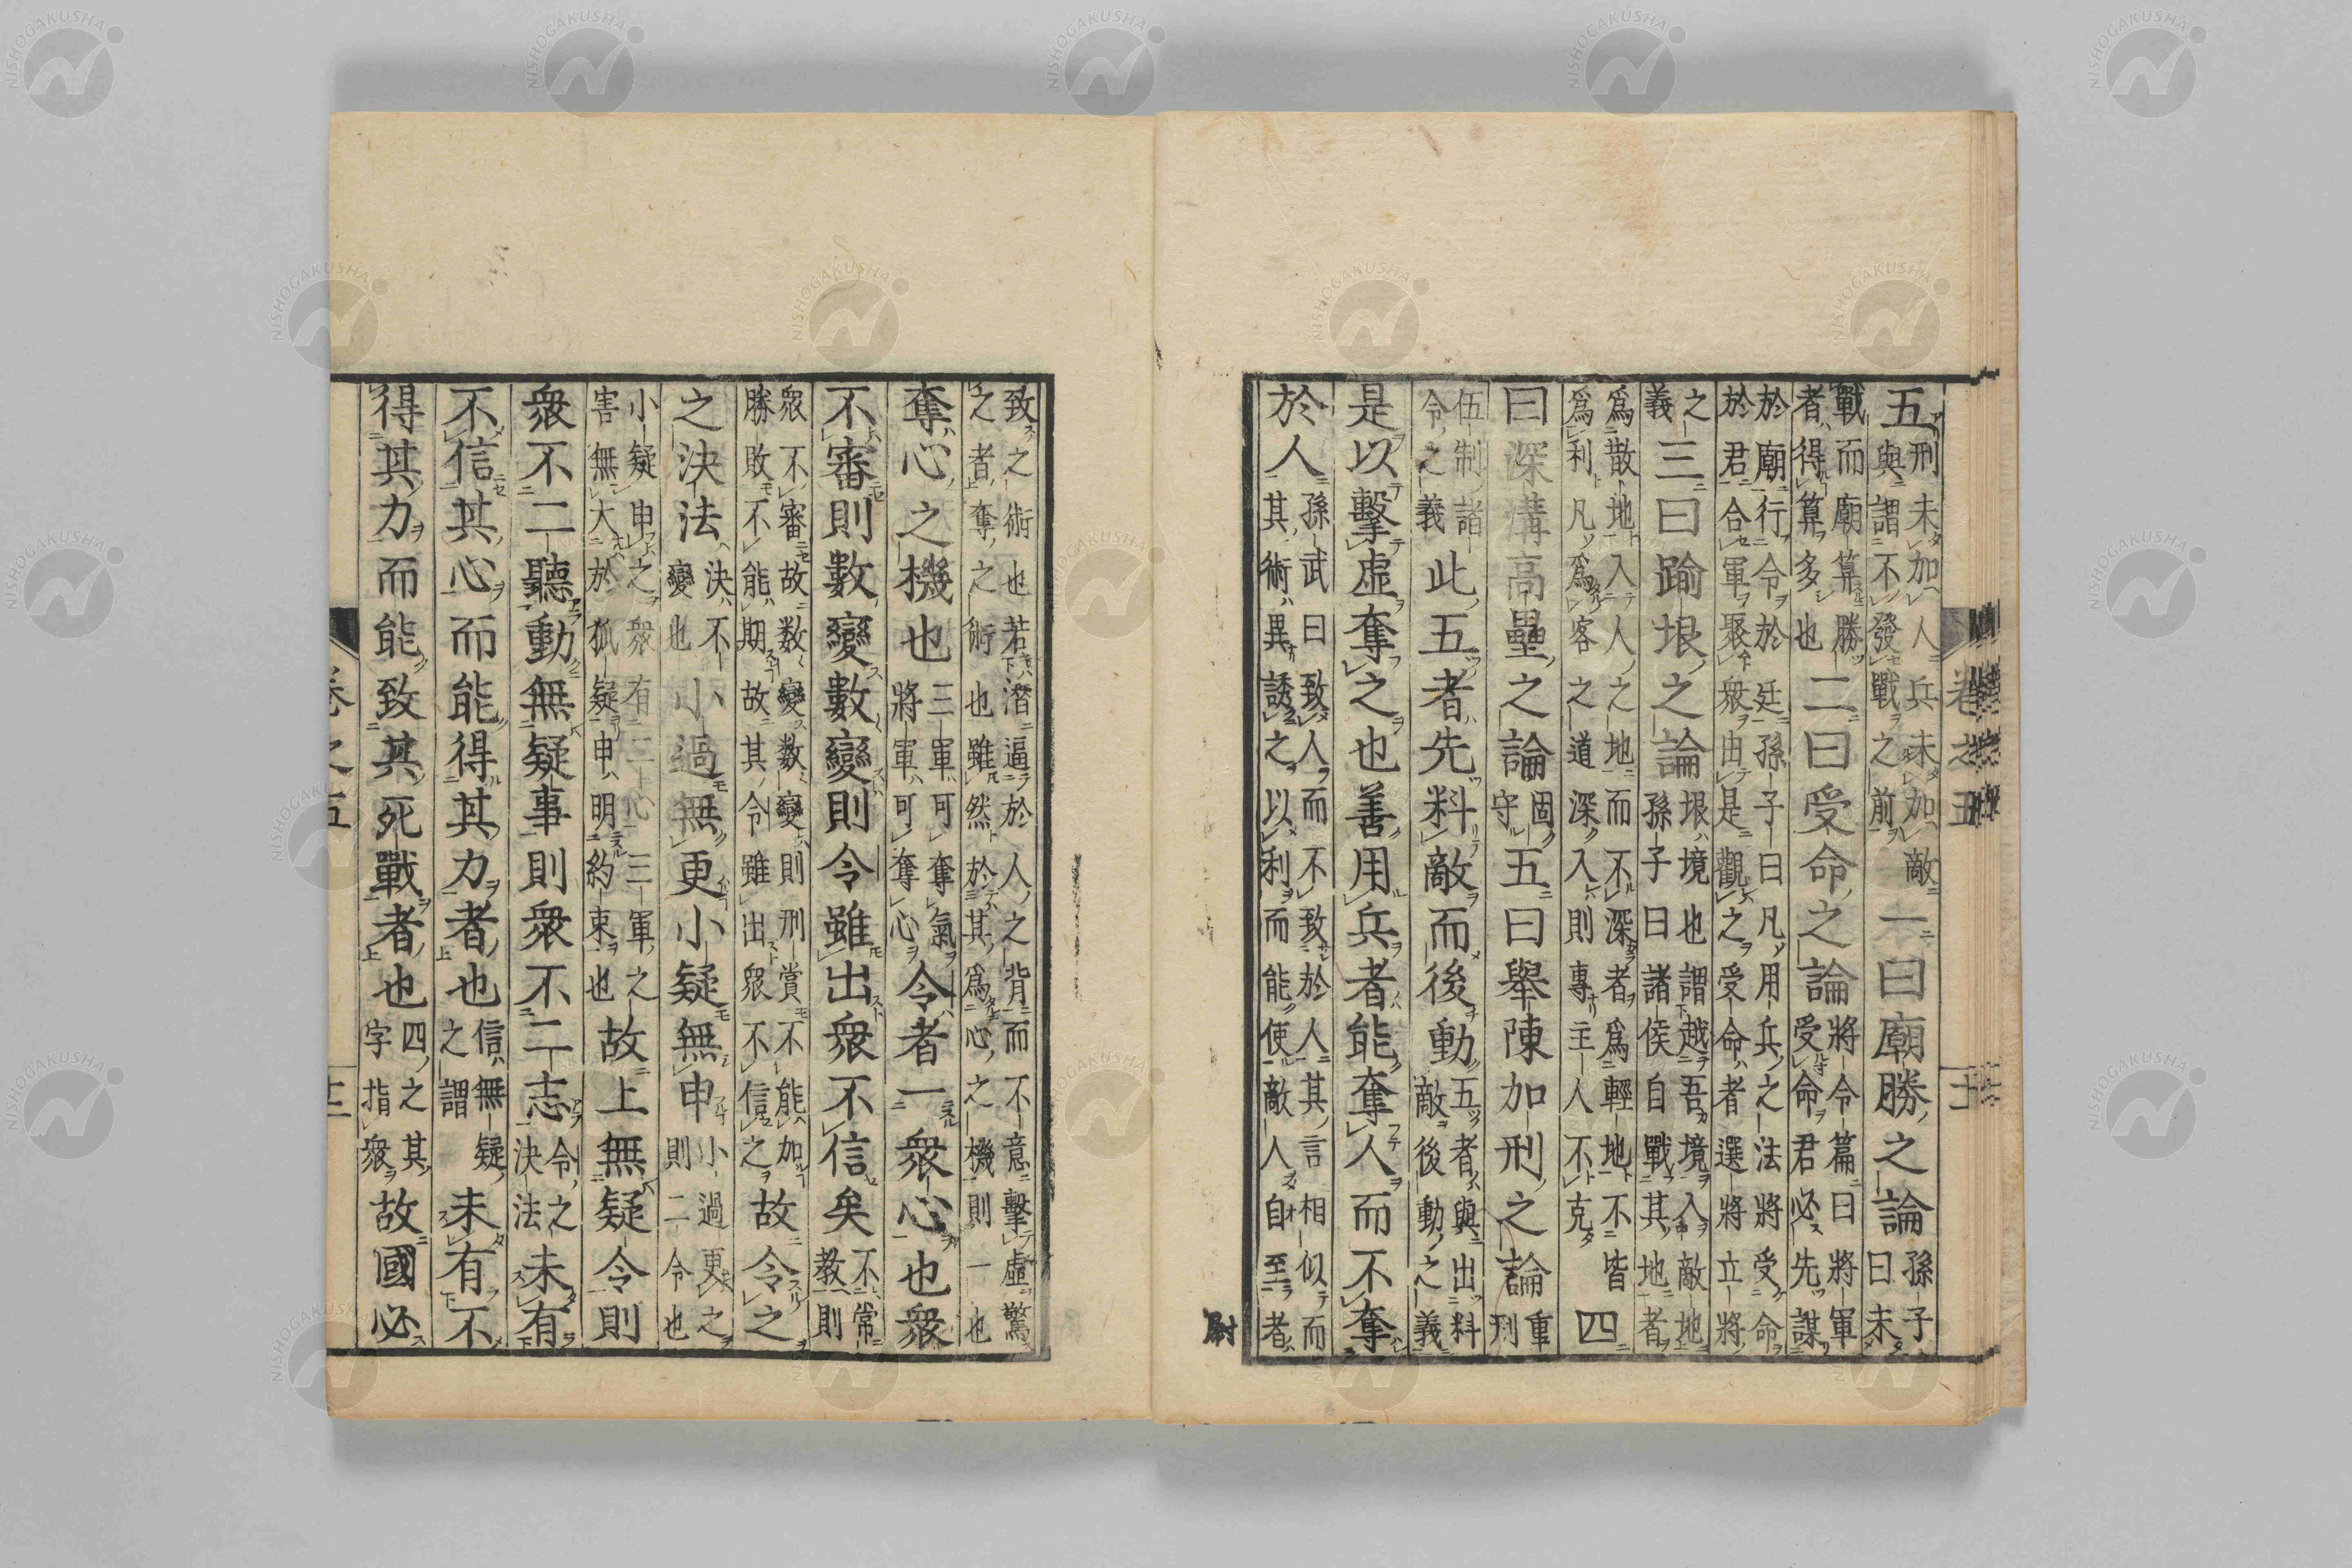 卷之五
五
刑未加人兵未加敵
與謂不發戰之前
一曰廟勝之論
孫子
曰未
戰而廟算勝
者得算多也
二曰受命之論
將令篇曰將軍
受命君必先謀
於廟行令於廷孫子曰凡用兵之法將受命
於君合軍聚衆由是觀之受命者選將立將
之
義
三曰踰垠之論
垠境也謂越吾境入敵地
孫子曰諸侯自戰其地者
爲散地入人之地而不深者爲輕地不皆
爲利凡爲客之道深入則專主人不克
四
曰深溝高壘之論
固
守
五曰舉陳加刑之論
重
刑
伍制諸
令之義
此五者先料敵而後動
五者與出料
敵後動之義
是以擊虛奪之也善用兵者能奪人而不奪
於人
孫武曰致人而不致於人其言相似而
其術異誘之以利而能使敵人自至者
尉
致之術也若潛逼於人之背而不意擊虛驚
之者奪之術也雖然於其爲心之機則一也
奪心之機也
三軍可奪氣
將軍可奪心
令者一衆心也衆
不審則數變數變則令雖出衆不信矣
不常
教則
衆不審故数變数變則刑賞不能加
勝敗不能期故其令雖出衆不信之
故令之
之決法
決不
變也
小過無更小疑無申
小過更之
則二令也
小疑申之衆有二心三軍之
害無大於狐疑申明約束也
故上無疑令則
衆不二聽動無疑事則衆不二志
令之
決法
未有
不信其心而能得其力者也
信無疑
之謂
未有不
得其力而能致其死戰者也
四之其
字指衆
故國必
卷之五